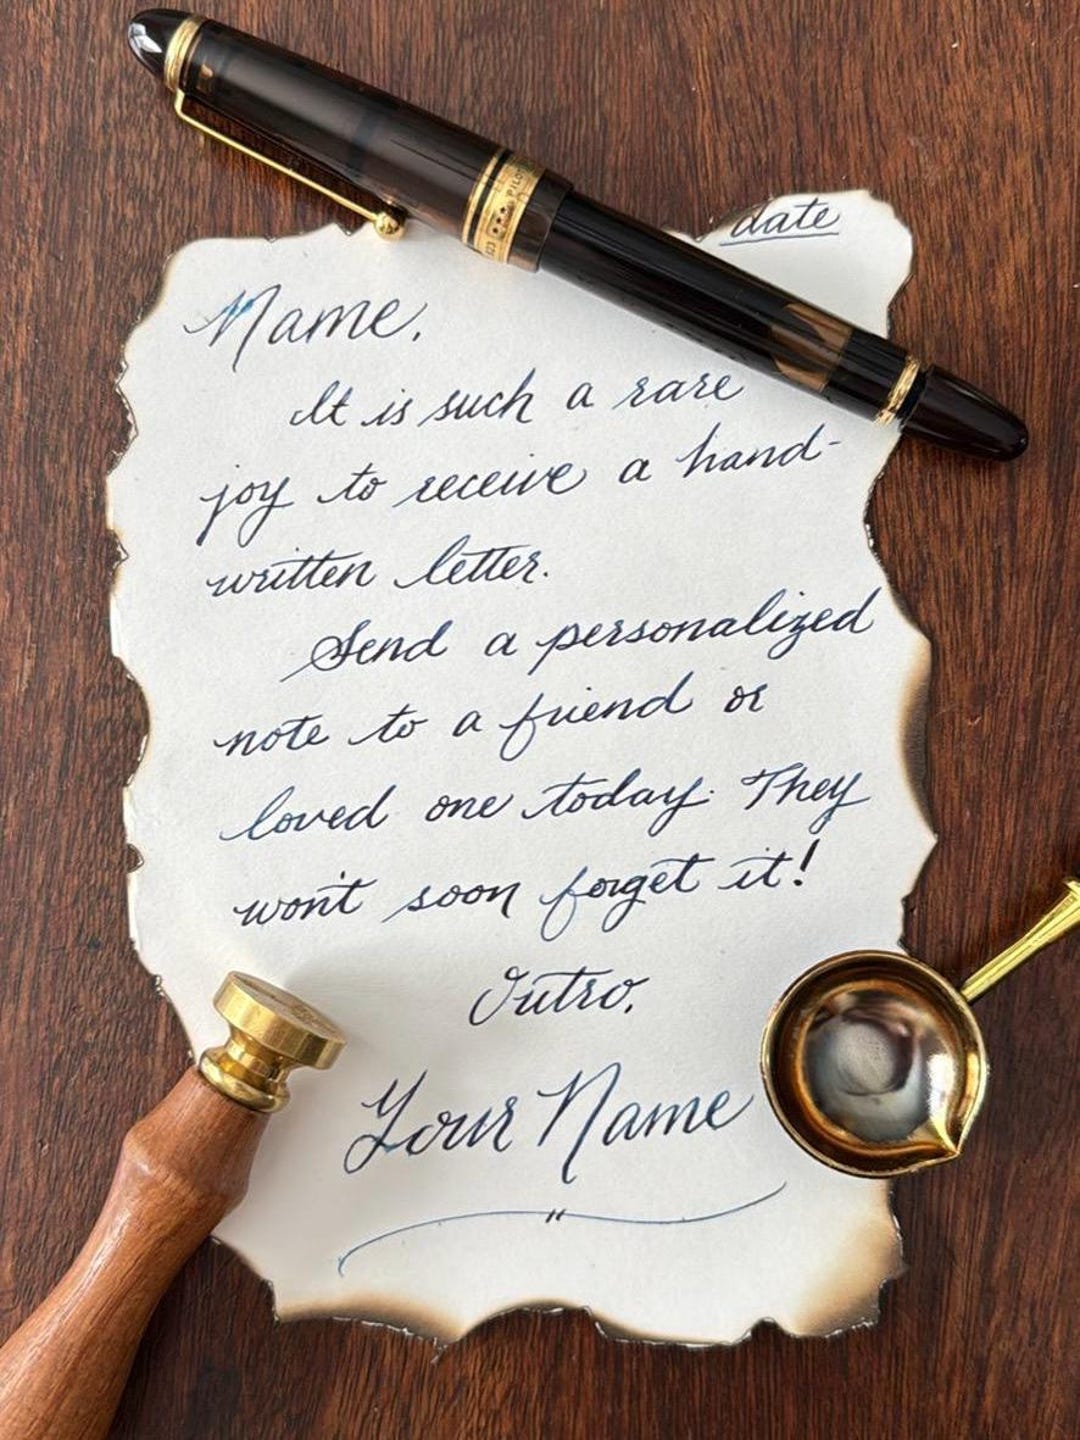 date
Name,
It is such a rare
joy to receive a hand-
written letter.
Send a personalized
note to a friend or
loved one today. They
won't soon forget it!
Outro,
Your Name